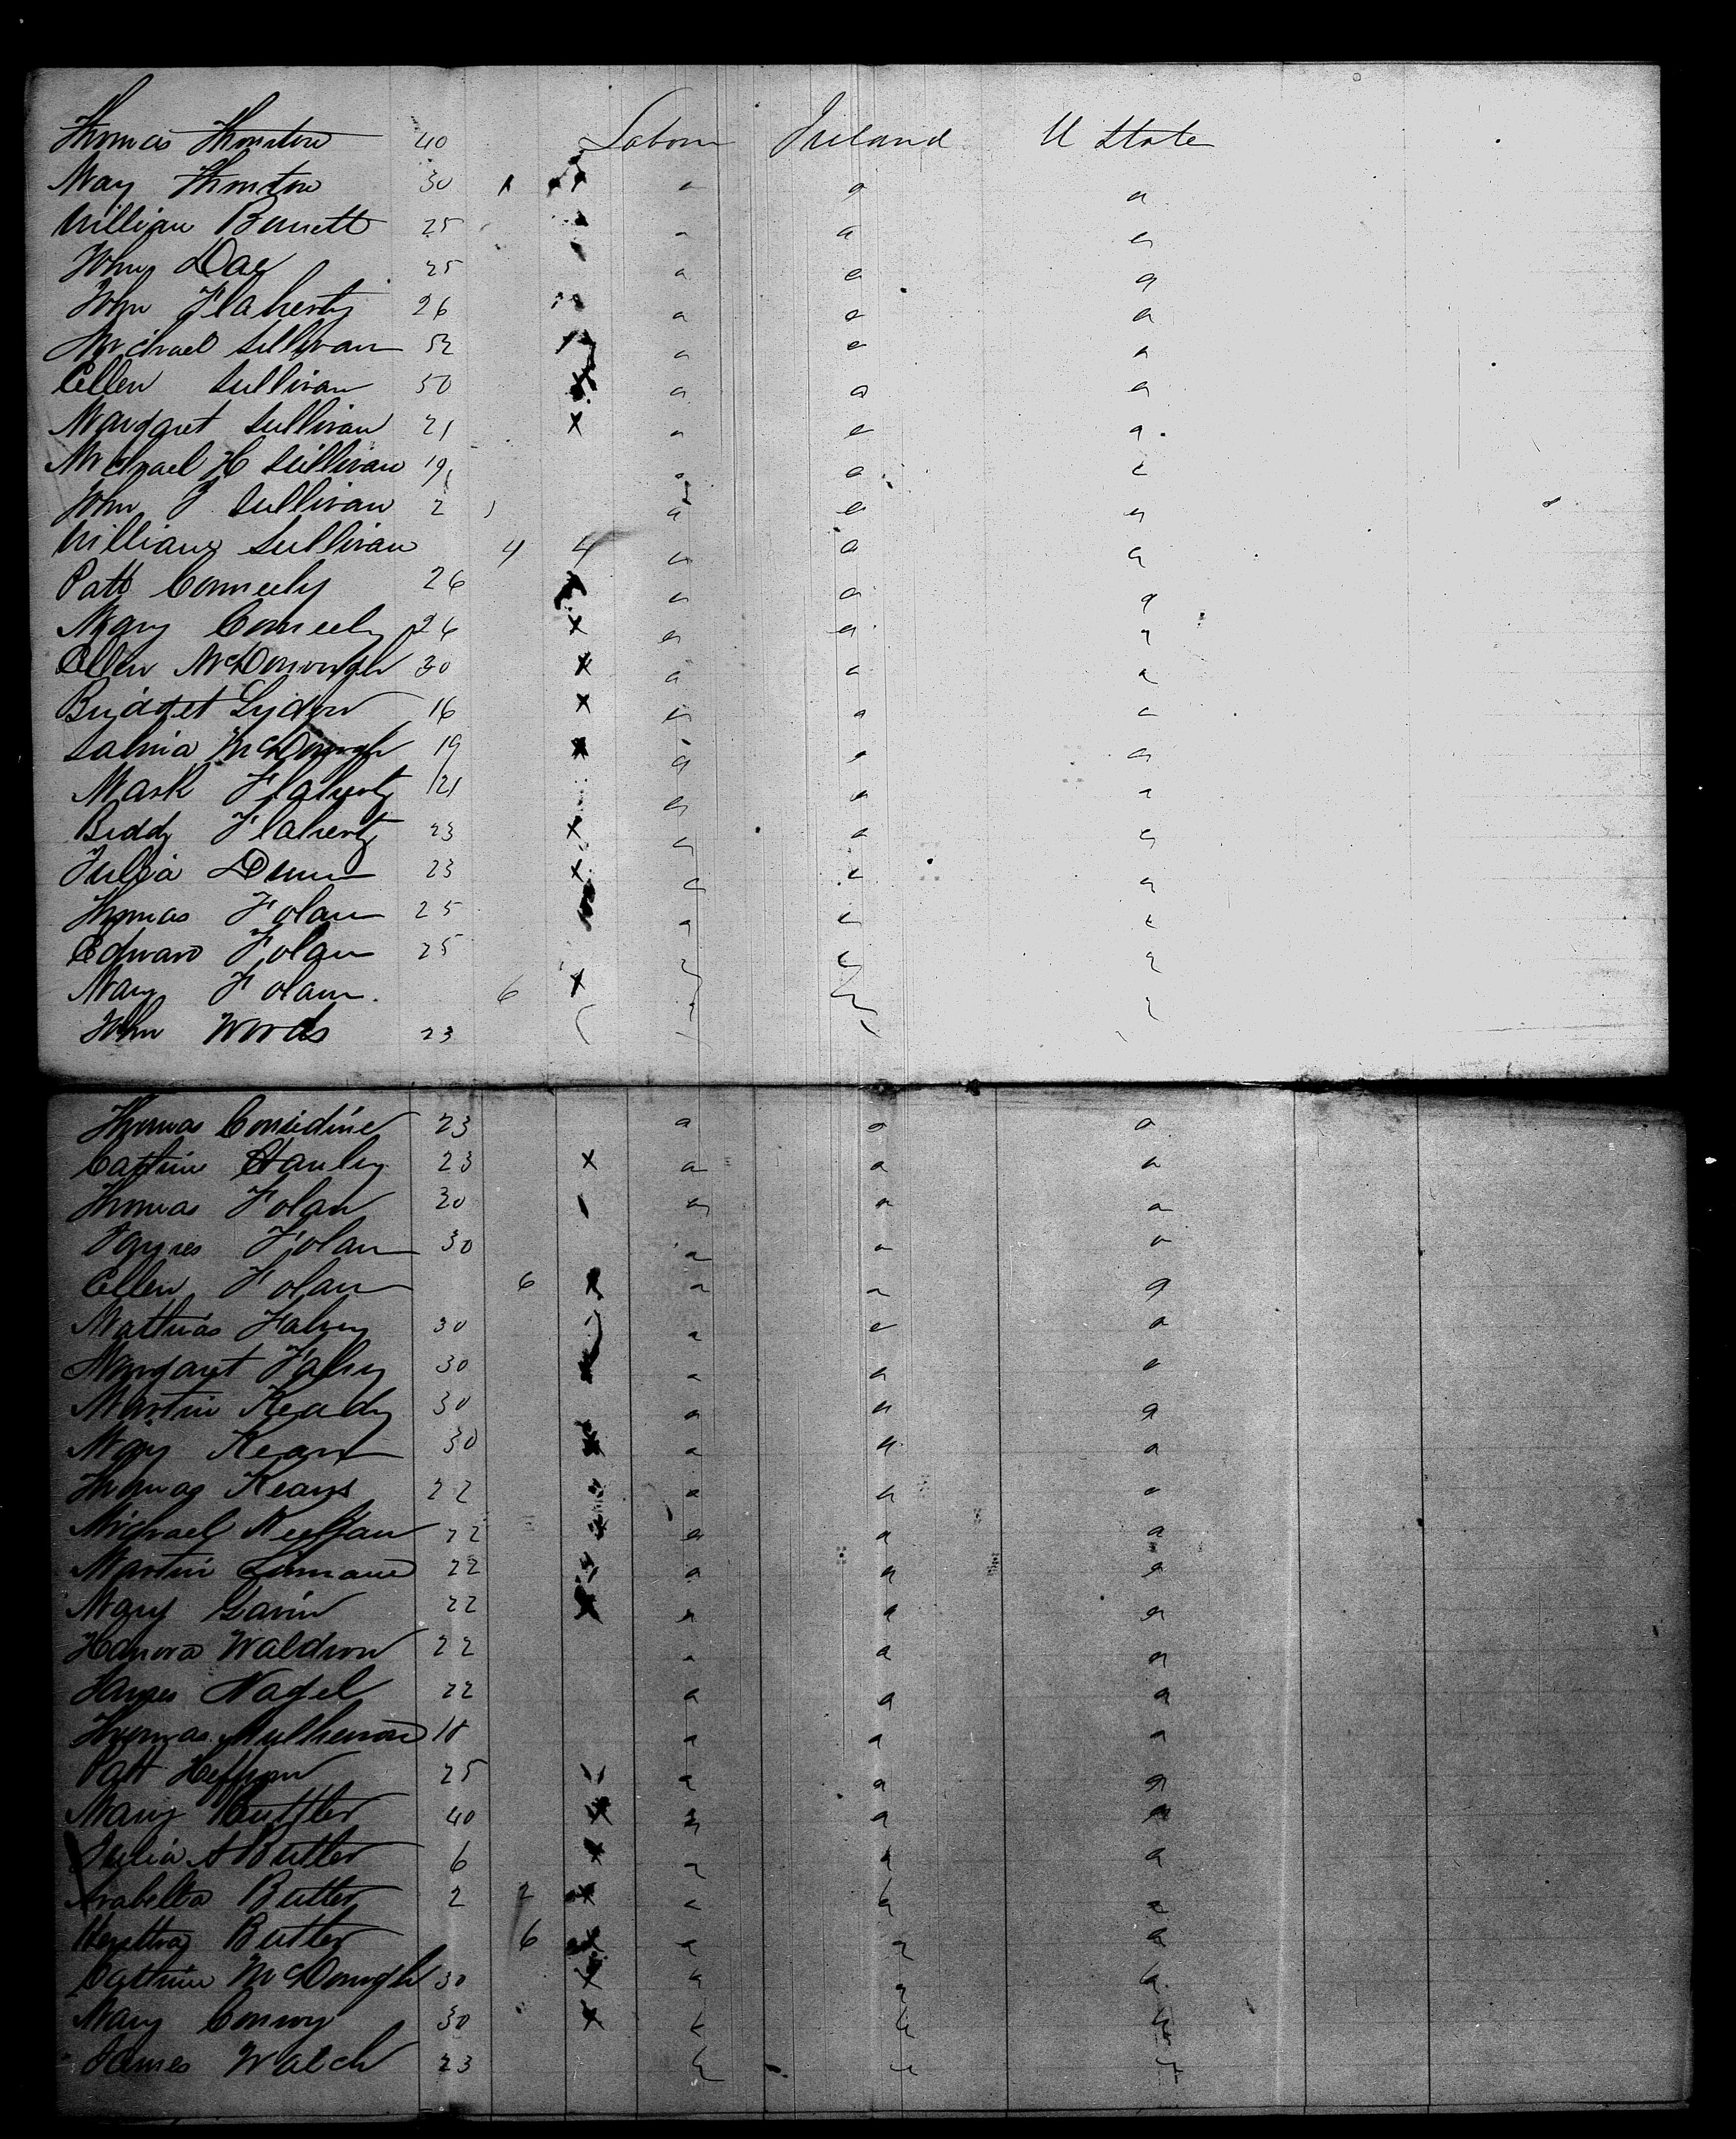 Thomas Thornton 40 Labour Ireland U State
Mary Thornton 30 1 " " "
William Burnett 25 " " "
John Dae 25 " " "
John Flaherty 26 " " "
Michael Sullivan 52 " " "
Ellen Sullivan 50 x " " "
Margaret Sullivan 21 x " " "
Michael H Sullivan 19 " " "
John J Sullivan 2 " " "
William Sullivan 4 4 " " "
Patt Conneely 26 " " "
Mary Conneely 26 x " " "
Ellen McDonough 30 x " " "
Bridget Lyden 16 x " " "
McDonogh 19 x " " "
Mark Flaherty 21 " " "
Biddy Flaherty 23 x " " "
Julia Dunn 23 x " " "
Thomas Folan 25 " " "
Edward Folan 25 " " "
Mary Folan 6 x " " "
John Words 23 " " "
Thomas Considine 23 " " "
Cathrine Hanley 23 x " " "
Thomas Folan 30 " " "
Folan 30 " " "
Ellen Folan 6 x " " "
Mathias Fahey 30 " " "
Margaret Fahey 30 " " "
Martin Keady 30 " " "
Mary Kean 30 x " " "
Thomas Keans 22 " " "
Michael 22 " " "
Martin 22 " " "
Mary Gavin 22 x " " "
Hanora Waldron 22 " " "
James Nagel 22 " " "
Thomas 18 " " "
Patt Heffron 25 " " "
Mary Buttler 40 x " " "
Julia A Butler 6 x " " "
Arabella Butler 2 2 x " " "
Butler 6 x " " "
Cathrine McDonogh 30 x " " "
Mary Conroy 30 x " " "
James Walch 23 " " "